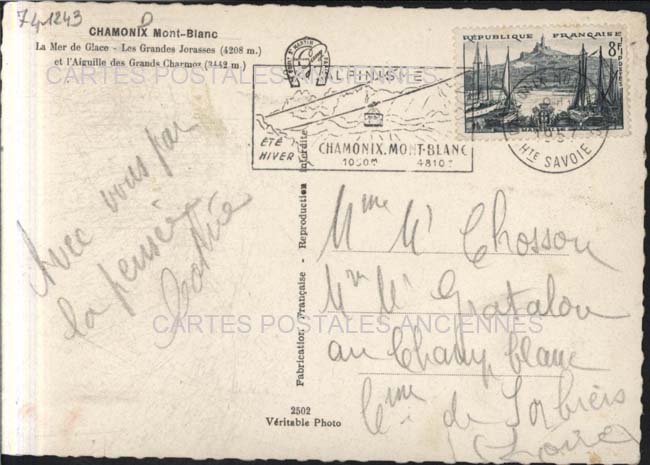 74-1243 D
CHAMONIX Mont-Blanc
La Mer de Glace - Les Grandes Jorasses (4208 m.)
et l'Aiguille des Grands Charmoz (3442 m.)
CARTES POSTALES ANCIENNES
RÉPUBLIQUE FRANÇAISE
8F
POSTES
ALPINISME
ÉTÉ
HIVER
CHAMONIX.MONT-BLANC
1050m 4810m
CHAMONIX MONT-BLANC
1957
HTE SAVOIE
Avec vous par
la pensée
Mme Mr Chosson
Mme Mr Gratalou
au Champ blanc
Cme de Sorbiers
(Loire)
CARTES POSTALES ANCIENNES
Fabrication Française - Reproduction interdite
2502
Véritable Photo